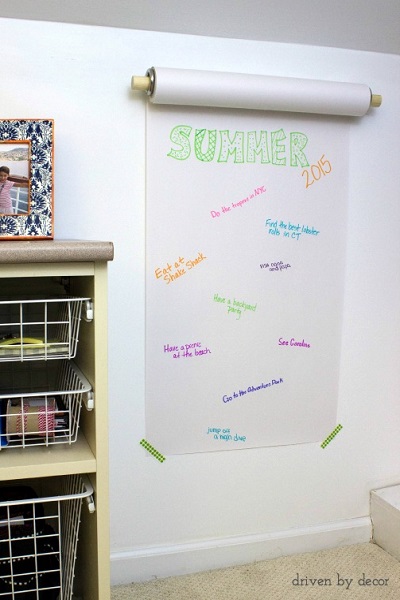 SUMMER
2015
Do the trapeze in NYC
Find the best lobster
rolls in CT
Eat at
Shake Shack
Visit nana
and papa
Have a backyard
party
Have a picnic
at the beach
See Caroline
Go to the Adventure Park
Jump off
a high dive
driven by decor